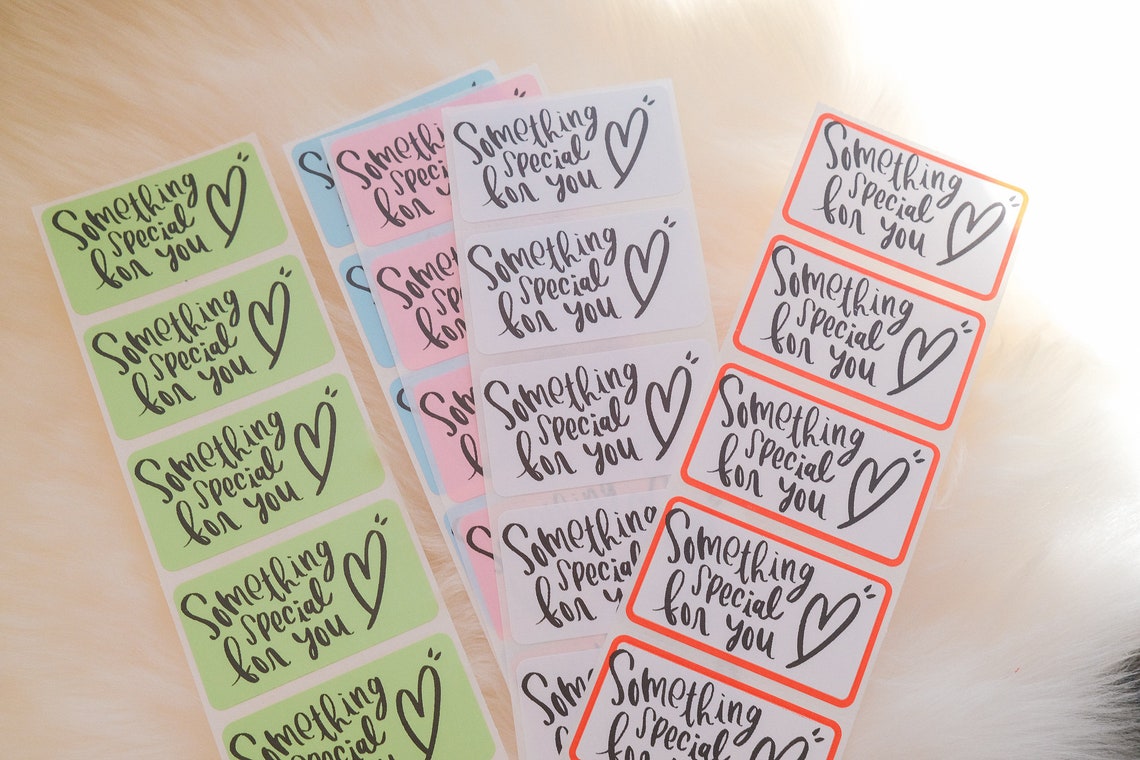 Something
special
for you
Something
special
for you
Something
special
for you
Something
special
for you
Something
special
for you
Something
special
for
Something
special
for you
Something
special
for you
Something
special
for you
Something
special
for
Something
special
for you
Something
special
for you
Something
special
for you
Something
special
for you
Something
special
for you